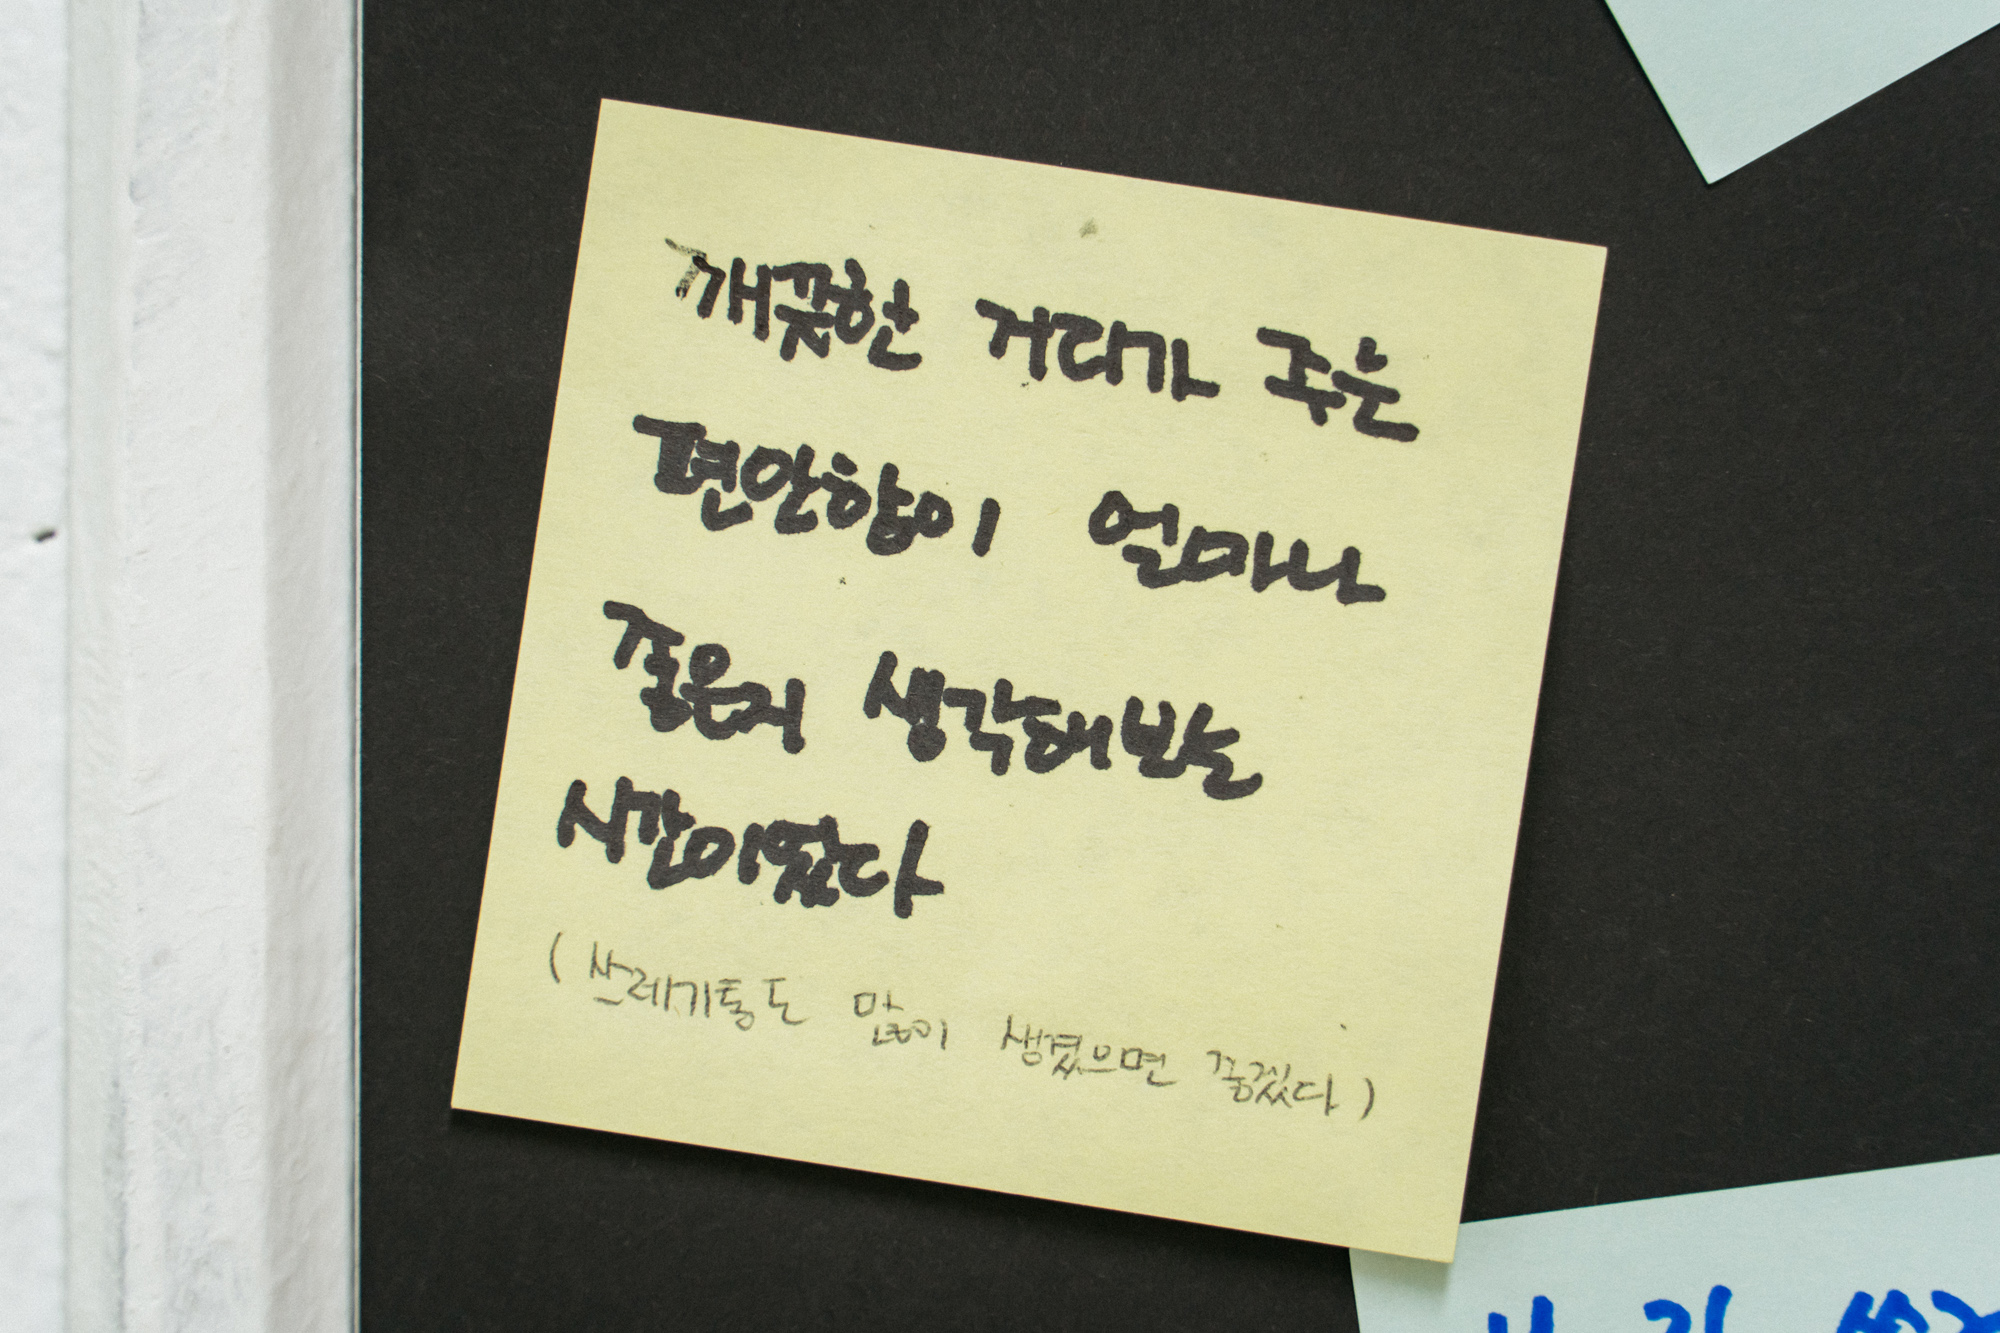 깨끗한 거리가 주는
편안함이 얼마나
좋은지 생각해보는
시간이었다
(쓰레기통도 많이 생겼으면 좋겠다)